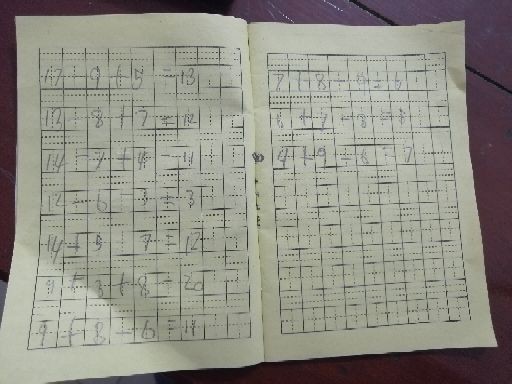 17 - 9 + 5 = 13
12 - 8 + 7 = 11
14 - 7 + 4 = 11
12 - 6 - 3 = 3
14 + 5 - 7 = 12
9 + 3 + 8 = 20
9 + 8 - 6 = 11
7 + 8 - 9 = 6
6 + 7 - 8 = 5
4 + 9 - 6 = 7